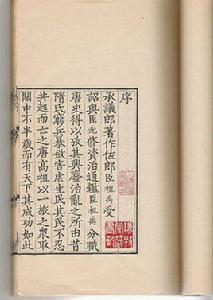 序
承議郎著作佐郎臣祖禹受
詔與臣光脩資治通鑑臣祖禹分職
唐史得以攷其興廢治亂之所由昔
隋氏窮兵暴斂害虐生民其民不忍
共起而亡之唐高祖以一旅之衆取
關中不半歲而有天下其成功如此